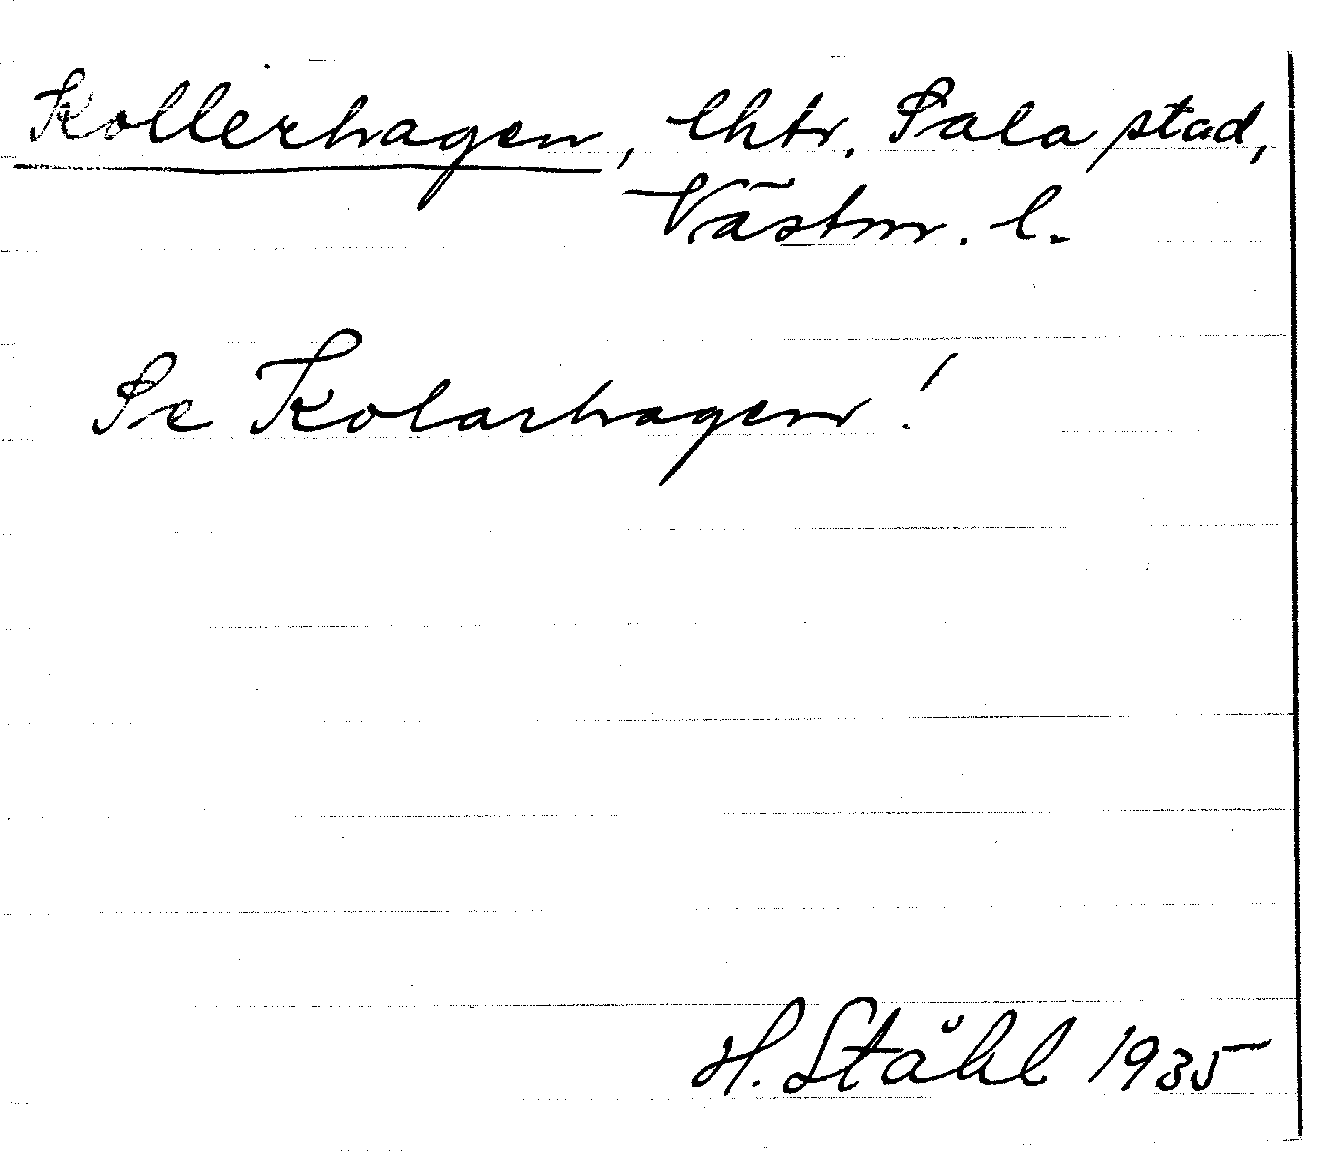 Kollerhagen, lhtr. Sala stad,
Västm. l.
Se Kolarhagen!
H. Ståhl 1935